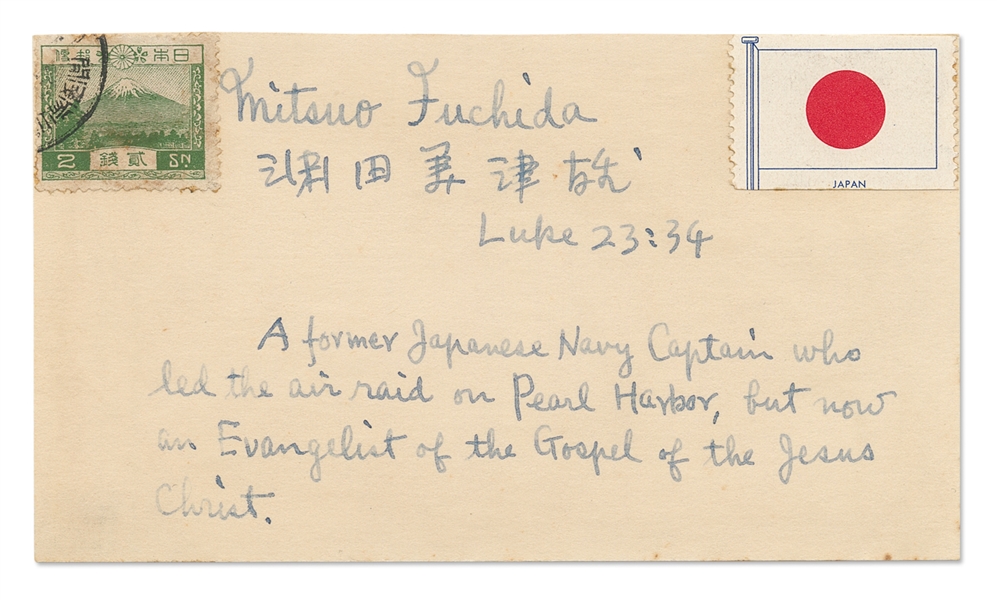 日本郵便
2 貳錢 SN.
JAPAN
Mitsuo Fuchida
淵田美津雄
Luke 23:34
A former Japanese Navy Captain who
led the air raid on Pearl Harbor, but now
an Evangelist of the Gospel of the Jesus
Christ.